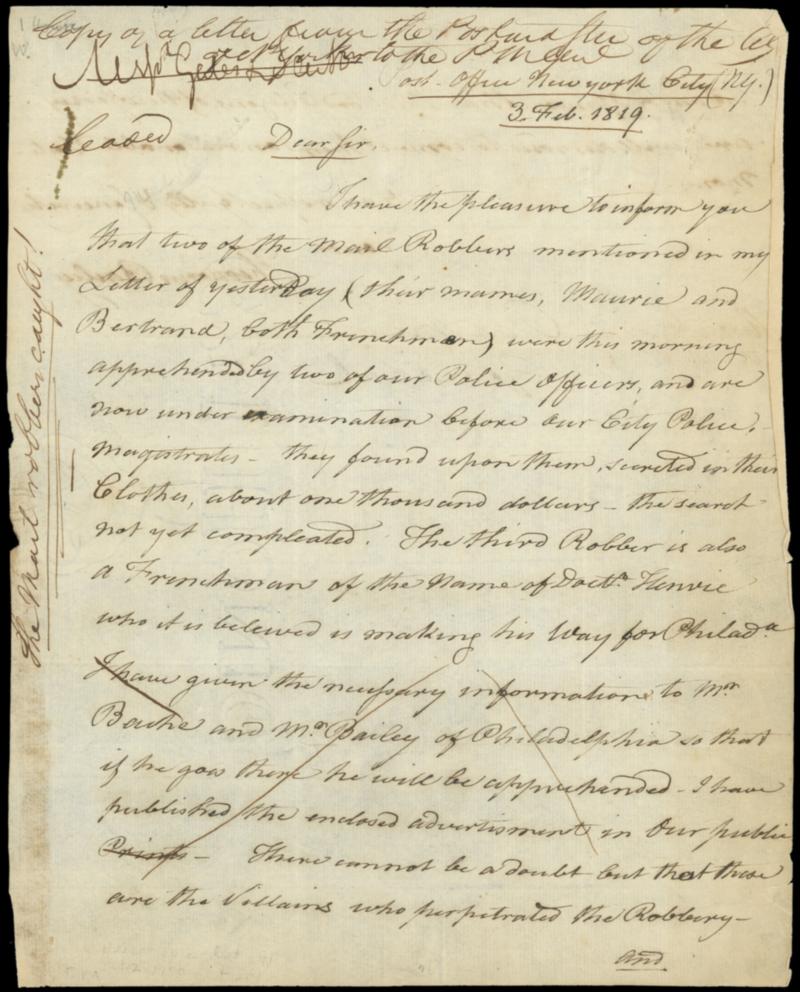 Copy of a letter from the Postmaster of the City
of New York to the P M Genl
Messrs Gales & Seaton
Post-Office New york City (Ny.)
3. Feb. 1819.
leaded
Dear Sir,
I have the pleasure to inform you
that two of the Mail Robbers mentioned in my
Letter of yesterday (their names, Maurie and
Bertrand, both Frenchmen) were this morning
apprehended by two of our Police Officers, and are
now under examination before our City Police,
magistrates - they found upon them, secreted in their
Clothes, about one thousand dollars - the search
not yet compleated. The third Robber is also
a Frenchman of the Name of Doctr. Henvie
who it is beleived is making his Way for Philada
I have given the necessary information to Mr
Bache and Mr Bailey of Philadelphia so that
if he goes there he will be apprehended - I have
published the enclosed advertisment in Our public
Prints - There cannot be a doubt but that these
are the Villains who perpetrated the Robbery -
and
The Mail robbers caught!